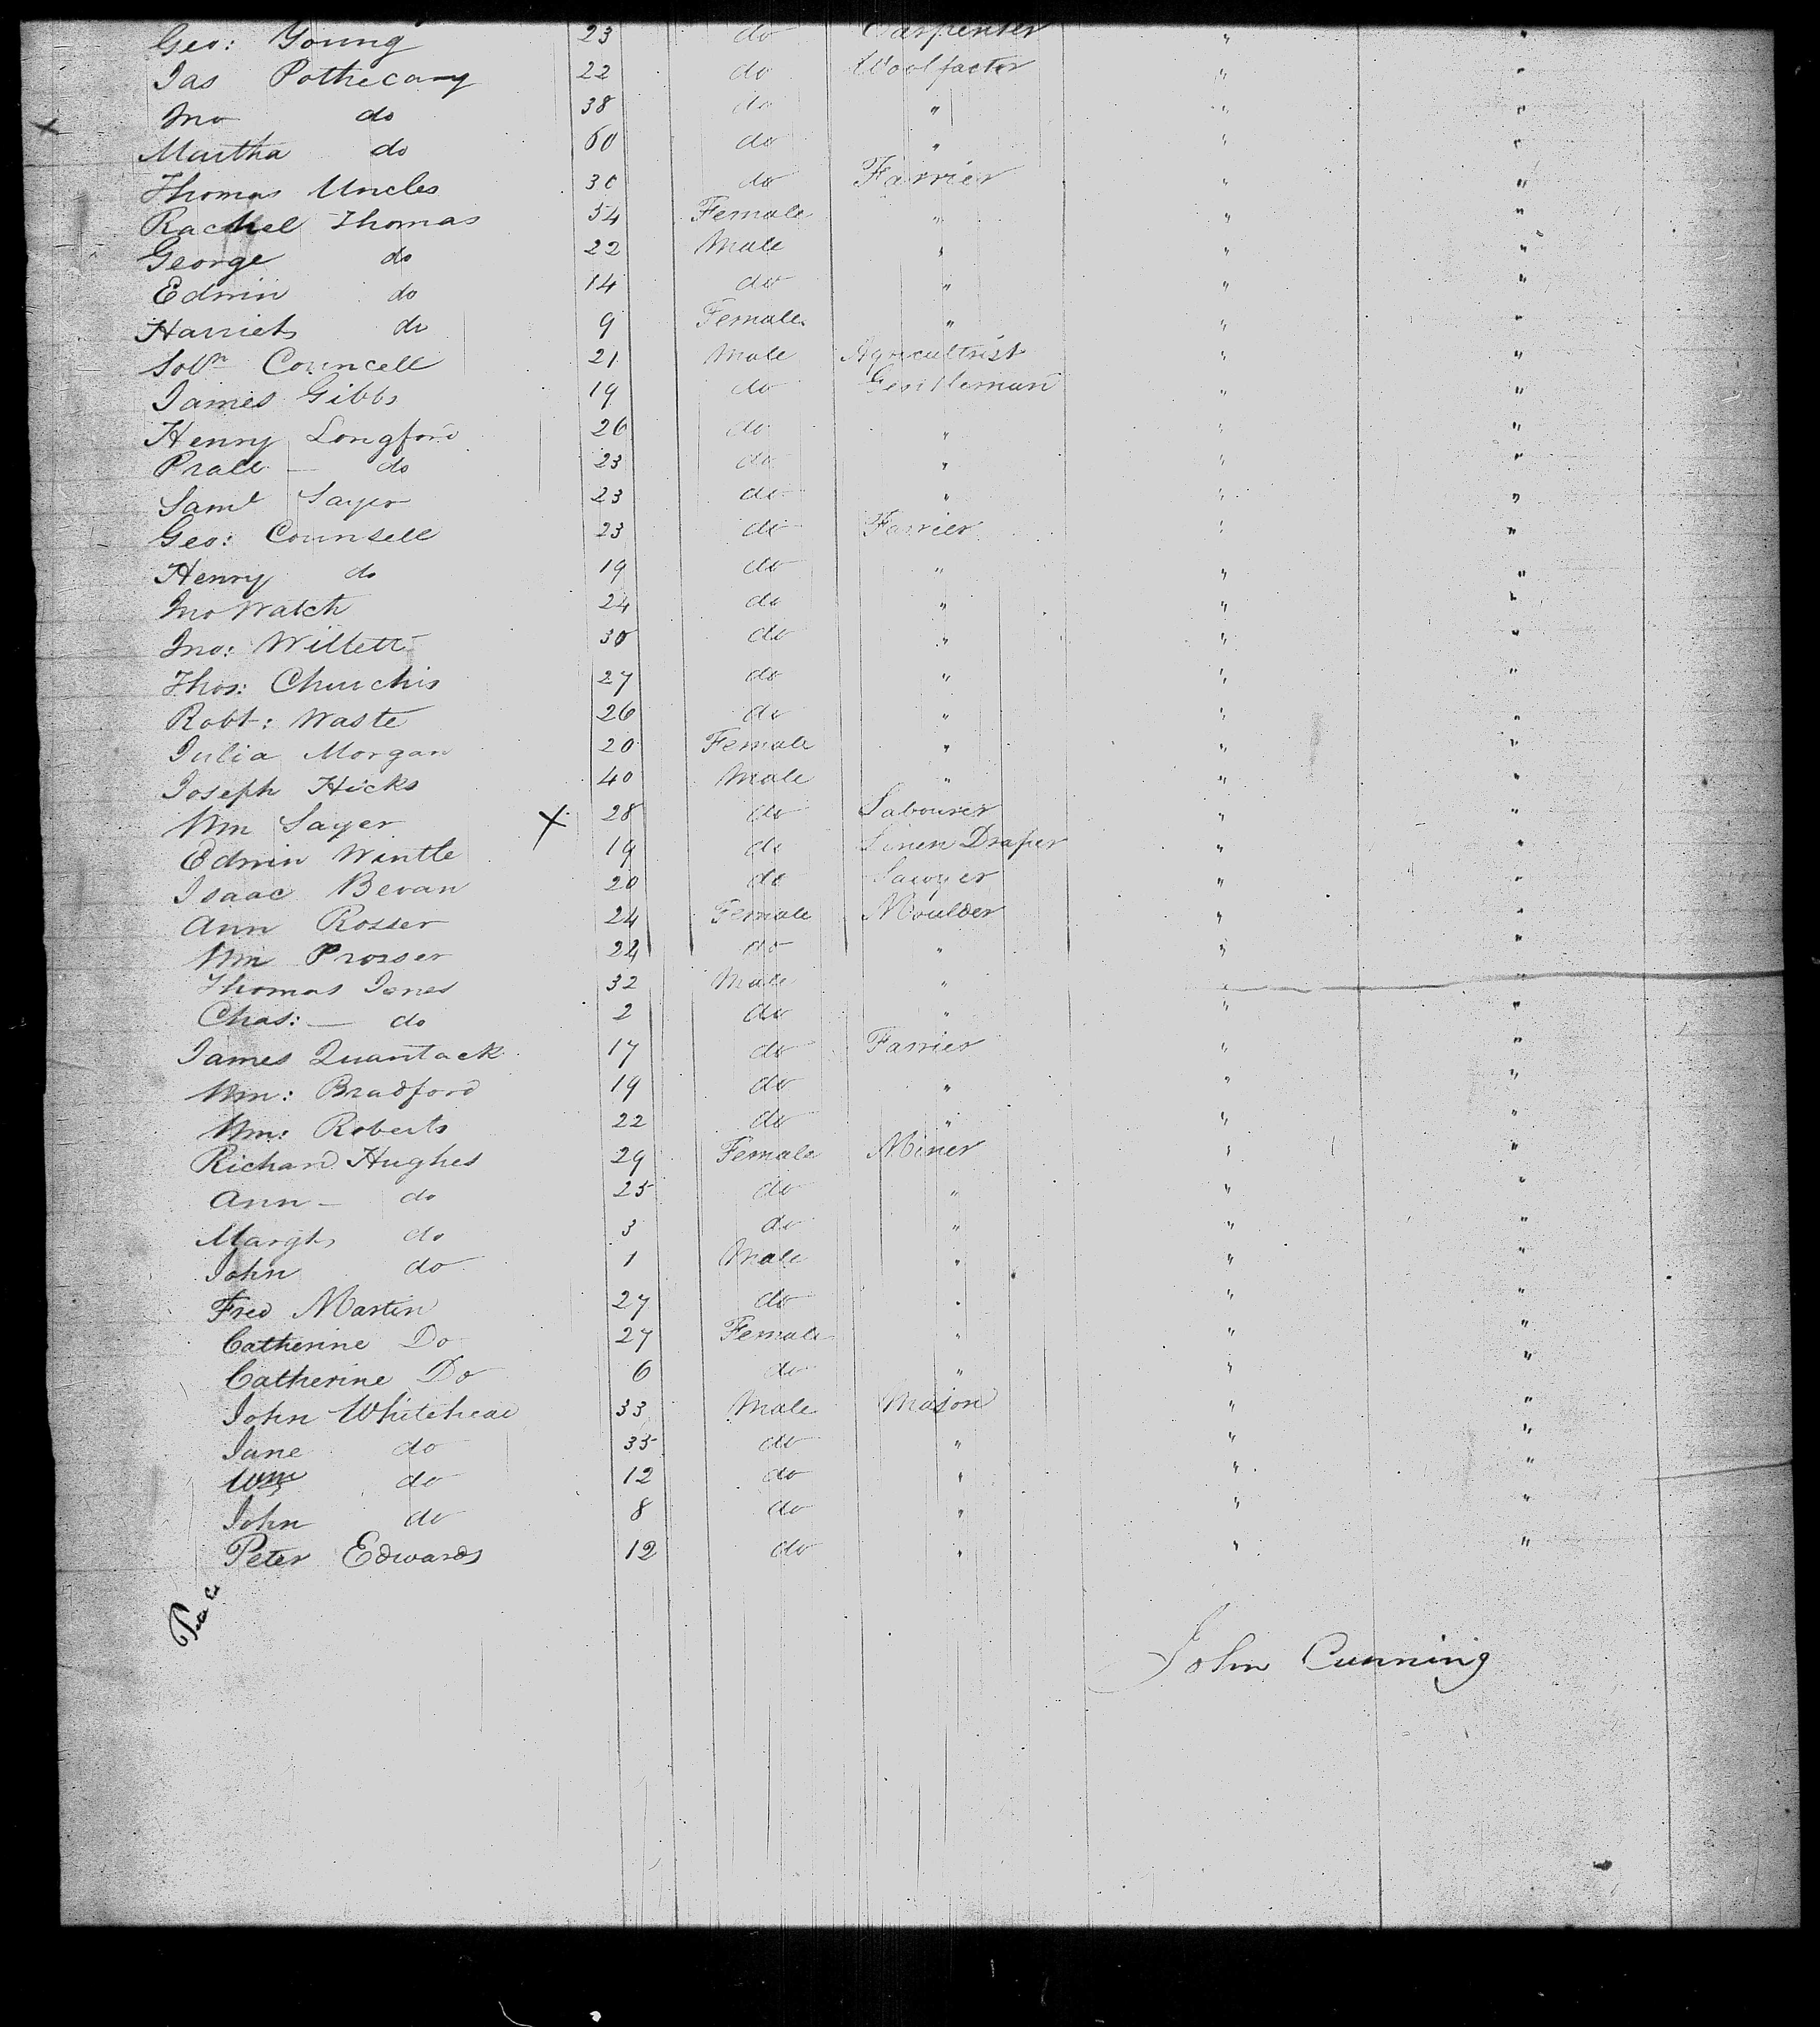 Geo: Young 23 do Carpenter " "
Jas Pothecary 22 do Woolfactor " "
Jno do 38 do " " "
Martha do 60 do " " "
Thomas Uncles 30 do Farrier " "
Rachel Thomas 54 Female " " "
George do 22 Male " " "
Edwin do 14 do " " "
Harriet do 9 Female " " "
Councell 21 Male Agricultrist " "
James Gibbs 19 do Gentleman " "
Henry Longford 26 do " " "
do 23 do " " "
Saml Sayer 23 do " " "
Geo: Counsell 23 do Farrier " "
Henry do 19 do " " "
Jno Watch 24 do " " "
Jno: Willett 30 do " " "
Thos: Churchis 27 do " " "
Robt: Waste 26 do " " "
Julia Morgan 20 Female " " "
Joseph Hicks 40 Male " " "
Wm Sayer X 28 do Labourer " "
Edwin Wintle 19 do Linen Draper " "
Isaac Bevan 20 do Sawyer " "
Ann Rosser 24 Female Moulder " "
Wm Prosser 24 do " " "
Thomas Jones 32 Male " " "
Chas: — do 2 do " " "
James Quantack 17 do Farrier " "
Wm: Bradford 19 do " " "
Wm: Roberts 22 do " " "
Richard Hughes 29 Female Miner " "
Ann — do 25 do " " "
Margt do 3 do " " "
John do 1 Male " " "
Fred Martin 27 do " " "
Catherine Do 27 Female " " "
Catherine Do 6 do " " "
John Whitehead 33 Male Mason " "
Jane do 35 do " " "
Wm do 12 do " " "
John do 8 do " " "
Peter Edwards 12 do " " "
John Cunning